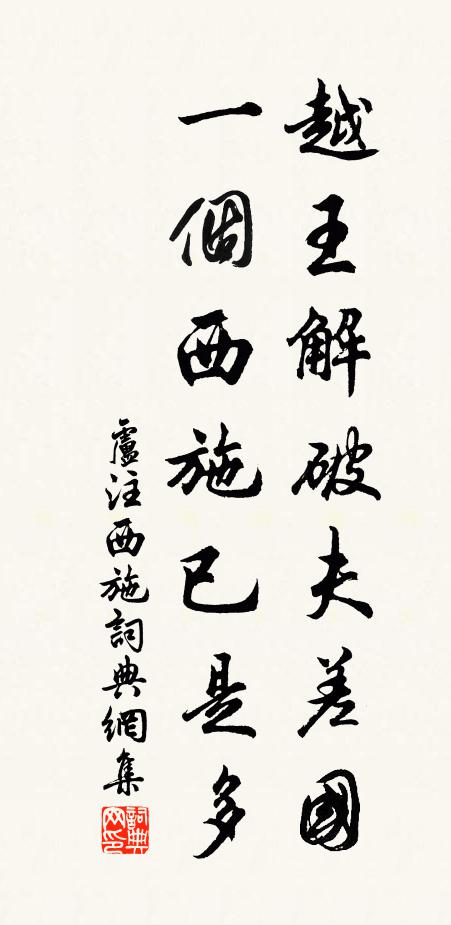 越王解破夫差國
一個西施已是多
盧注西施詞典網集
詞典
网印